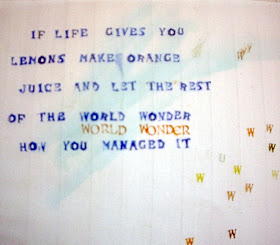 IF LIFE GIVES YOU
LEMONS MAKE ORANGE
JUICE AND LET THE REST
OF THE WORLD WONDER
WORLD WONDER
HOW YOU MANAGED IT
W
W W
W
W
U
W W
W
W W
W
W
W W